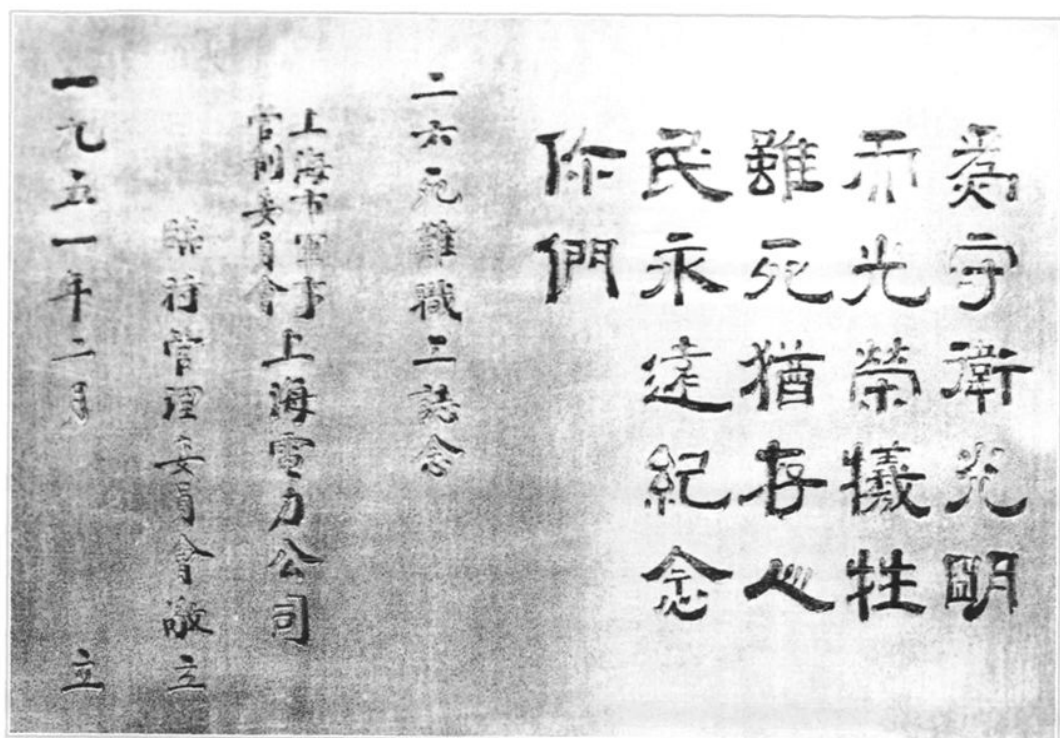 為守衛光明
而光榮犧牲
雖死猶存人
民永遠紀念
你們
二六死難職工誌念
上海市軍事
管制委員會
上海電力公司
臨時管理委員會敬立
一九五一年二月 立